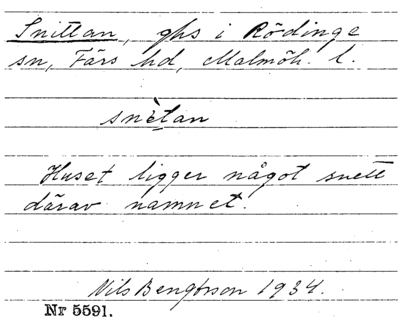 Snittan, ghs i Rödinge
sn, Färs hd, Malmöh. l.
snètan
Huset ligger något snett
därav namnet.
Nils Bengtsson 1934.
Nr 5591.